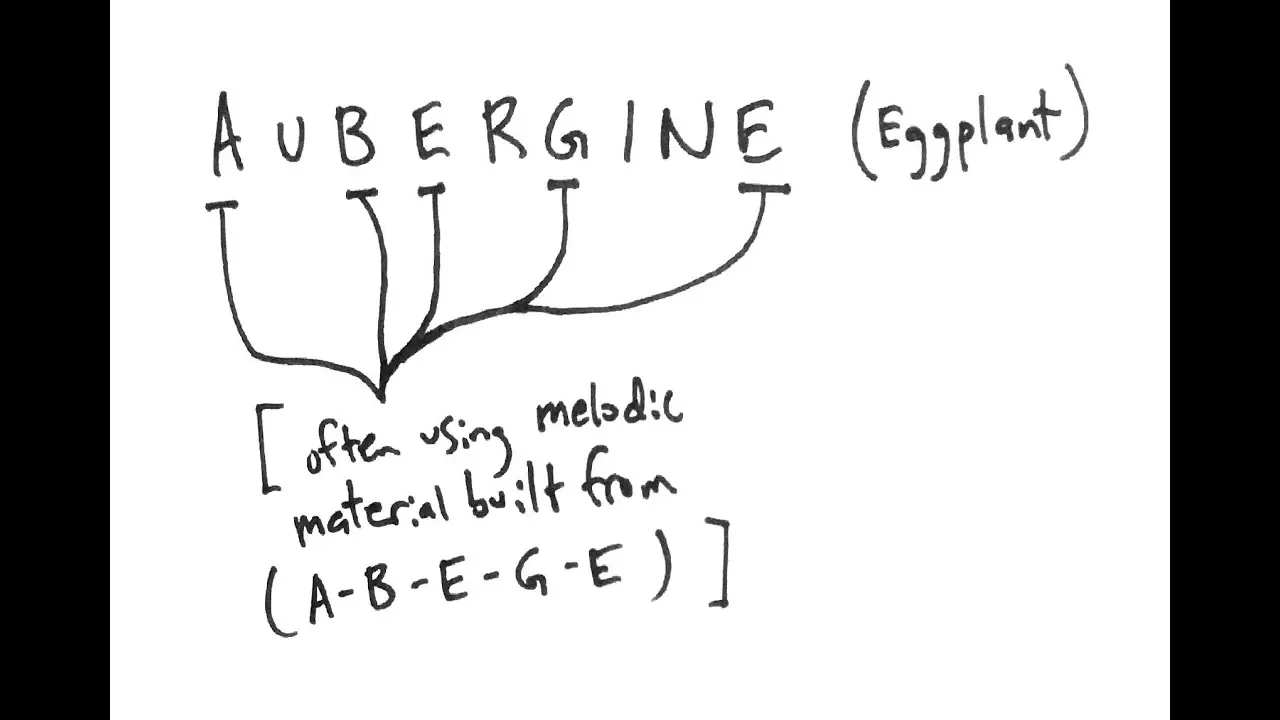 AUBERGINE (Eggplant)
[ often using melodic
material built from
(A-B-E-G-E) ]